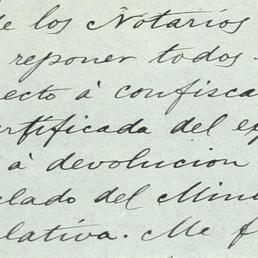 de los Notarios
reponer todos
ecto á confisca
ertificada del ex
á devolucion
elado del Mine
elativa. Me f